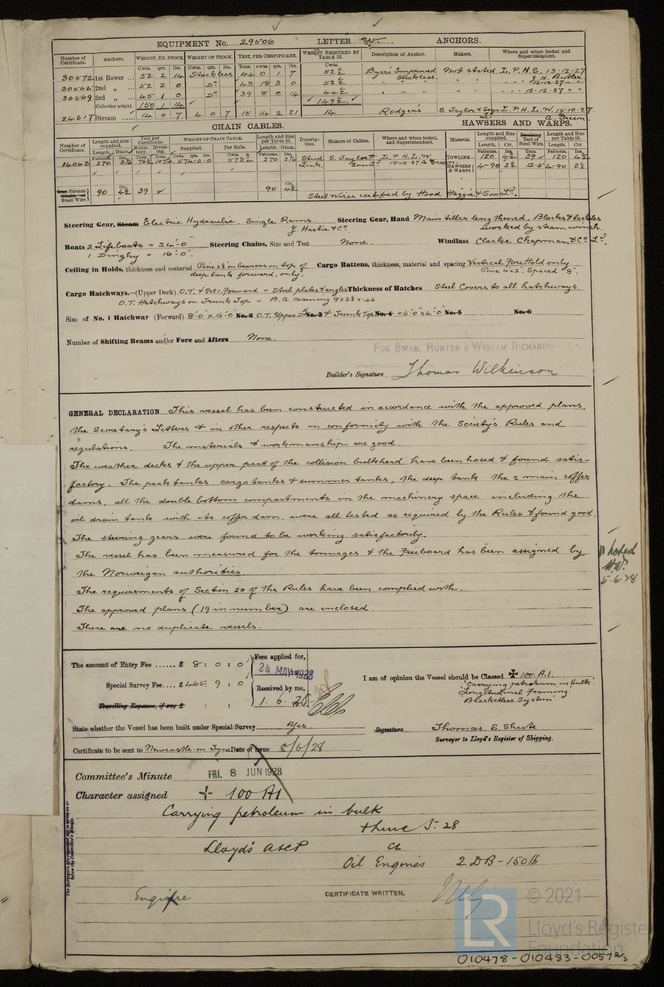 EQUIPMENT No. 29506 LETTER W ANCHORS.
Number of Certificate. Anchors. WEIGHT, EX. STOCK WEIGHT OF STOCK. TEST, PER CERTIFICATE. WEIGHT REQUIRED BY TABLE 31. Description of Anchor. Makers. Where and when tested and Superintendent.
30572 1st Bower 52 2 14 Stockless 44 0 1 7 52½ Byers Improved Stockless Not stated L.P.H.S. 13-12-27
2nd 52 2 0 Do 43 18 3 0 52½
30569 3rd 45 1 0 Do 39 8 0 14 44½
Collective weight 150 1 14 149½
24317 Stream 14 0 7 4 0 7 15 14 2 21 14 Rodgers
CHAIN CABLES. HAWSERS AND WARPS.
Number of Certificate. Length and Size supplied. Test per Certificate WEIGHT OF CHAIN CABLE. Length and Size per Table 31. Description. Makers of Cables. Where and when tested, and Superintendent. Material. Length and Size supplied. Length and Size per Table 31.
Supplied. Per Rule.
TOWLINE HAWSERS & WARPS
Stream Chain or Steel Wire 90 4½ 39 90 4½
Steel Wires certified by Hood Haggie & Son Ltd.
Steering Gear, Steam Electric Hydraulic, Single Rams. J Hastie & Co. Steering Gear, Hand Main tiller lengthened. Blocks & tackles worked by steam winch
Boats 2 Lifeboats = 24'0" Steering Chains, Size and Test None. Windlass Clarke Chapman & Co Ld.
1 Dinghy = 16'0"
Ceiling in Holds, thickness and material Pine 2½ on bearers on top of deep tanks forward, only. Cargo Battens, thickness, material and spacing Vertical Fore Hold only
Cargo Hatchways.—(Upper Deck) O.T. & No.1 Forward = Steel plates & angles Thickness of Hatches Steel Covers to all hatchways.
O.T. Hatchways on Trunk Top = B.A. coaming
Size of No. 1 Hatchway (Forward) 8'0" x 16'0" No. 2 O.T. Upper No. 3 & Trunk Top No. 4 = 6'0" x 4'0" No. 5 No. 6
Number of Shifting Beams and/or Fore and Afters None.
FOR SWAN, HUNTER & WIGHAM RICHARDSON
Builder's Signature Thomas Wilkinson
GENERAL DECLARATION This vessel has been constructed in accordance with the approved plans,
the Secretary's Letters & in other respects in conformity with the Society's Rules and
regulations. The materials & workmanship are good.
The weather decks & the upper part of the collision bulkhead have been hosed & found satis-
factory. The peak tanks, cargo tanks & summer tanks, the deep tank the 2 main coffer
dams, all the double bottom compartments in the machinery space including the
oil drain tanks with its cofferdam were all tested as required by the Rules & found good.
The steering gears were found to be working satisfactorily.
The vessel has been measured for the tonnages & the Freeboard has been assigned by
the Norweigan authorities.
The requirements of Section 20 of the Rules have been complied with.
The approved plans (19 in number) are enclosed
There are no duplicate vessels.
noted
5-6-28
The amount of Entry Fee £ 8 : 0 : 0
Special Survey Fee £ 465 : 9 : 0
Travelling Expenses, if any, £
Fees applied for,
24 MAY 1928
Received by me,
1. 6. 28
I am of opinion the Vessel should be Classed ✠ 100. A.1.
"Carrying petroleum in bulk"
"Longitudinal Framing
Bracketless System"
State whether the Vessel has been built under Special Survey Yes
Signature Thomas S. Shute
Surveyor to Lloyd's Register of Shipping.
Certificate to be sent to Newcastle on Tyne Date of issue 8/6/28
Committee's Minute FRI. 8 JUN 1928
Character assigned + 100 A1
Carrying petroleum in bulk
Lloyd's A&CP
Oil Engines 2 DB-150lb
CERTIFICATE WRITTEN.
LR
© 2021
Lloyd's Register
Foundation
010478-010483-0057 2/3